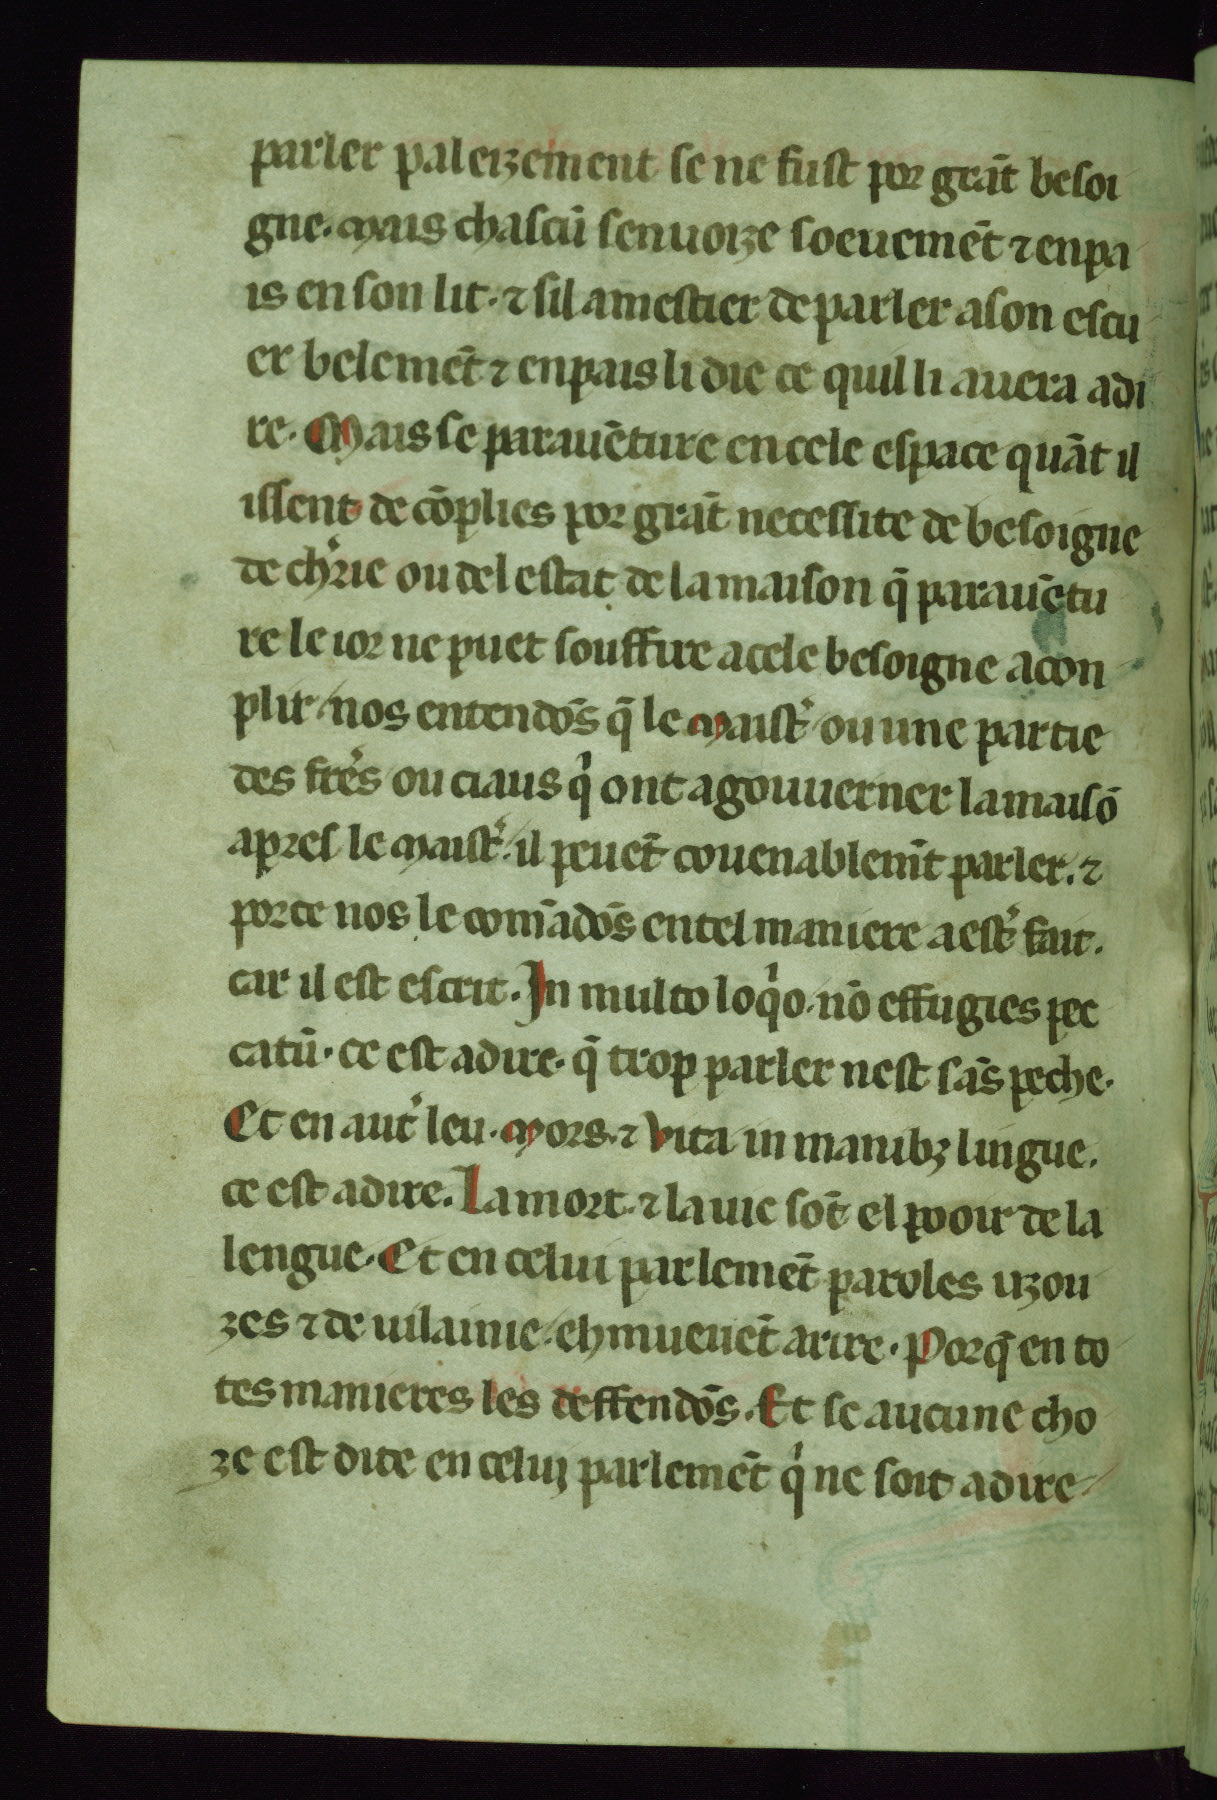 parler paleizement se ne fust por grāt besoi
gne. mais chascū sen uoize soeuemēt ⁊ en pa
is en son lit. ⁊ sil a mestier de parler a son escu
er belemēt ⁊ en pais li die ce quil li auera a di
re. Mais se parauēture en cele espace quāt il
issent de cōplies por grāt necessite de besoigne
de ch'rie ou del estat de la maison q̄ parauētu
re le ior ne puet souffire a cele besoigne a con
plir. nos entendōs q̄ le maist' ou une partie
des frēs ou ciaus q' ont a gouuerner la maisō
apres le maist'. il peuēt couenablemt̄ parler. ⁊
por ce nos le com̄adōs en tel maniere a est' fait.
car il est escrit. In multo loq'o nō effugies pec
catū. ce est a dire. q̄ trop parler nest sās peche.
Et en aut' leu. mors. ⁊ vita in manibꝫ lingue.
ce est a dire. La mort. ⁊ la uie sōt el pooir de la
lengue. Et en celui parlemēt paroles uzou
zes ⁊ de uilainie. eh mueuēt a rire. Por q̄ en to
tes manieres les deffendōs. Et se aucune cho
ze est dite en celui parlemēt q' ne soit a dire